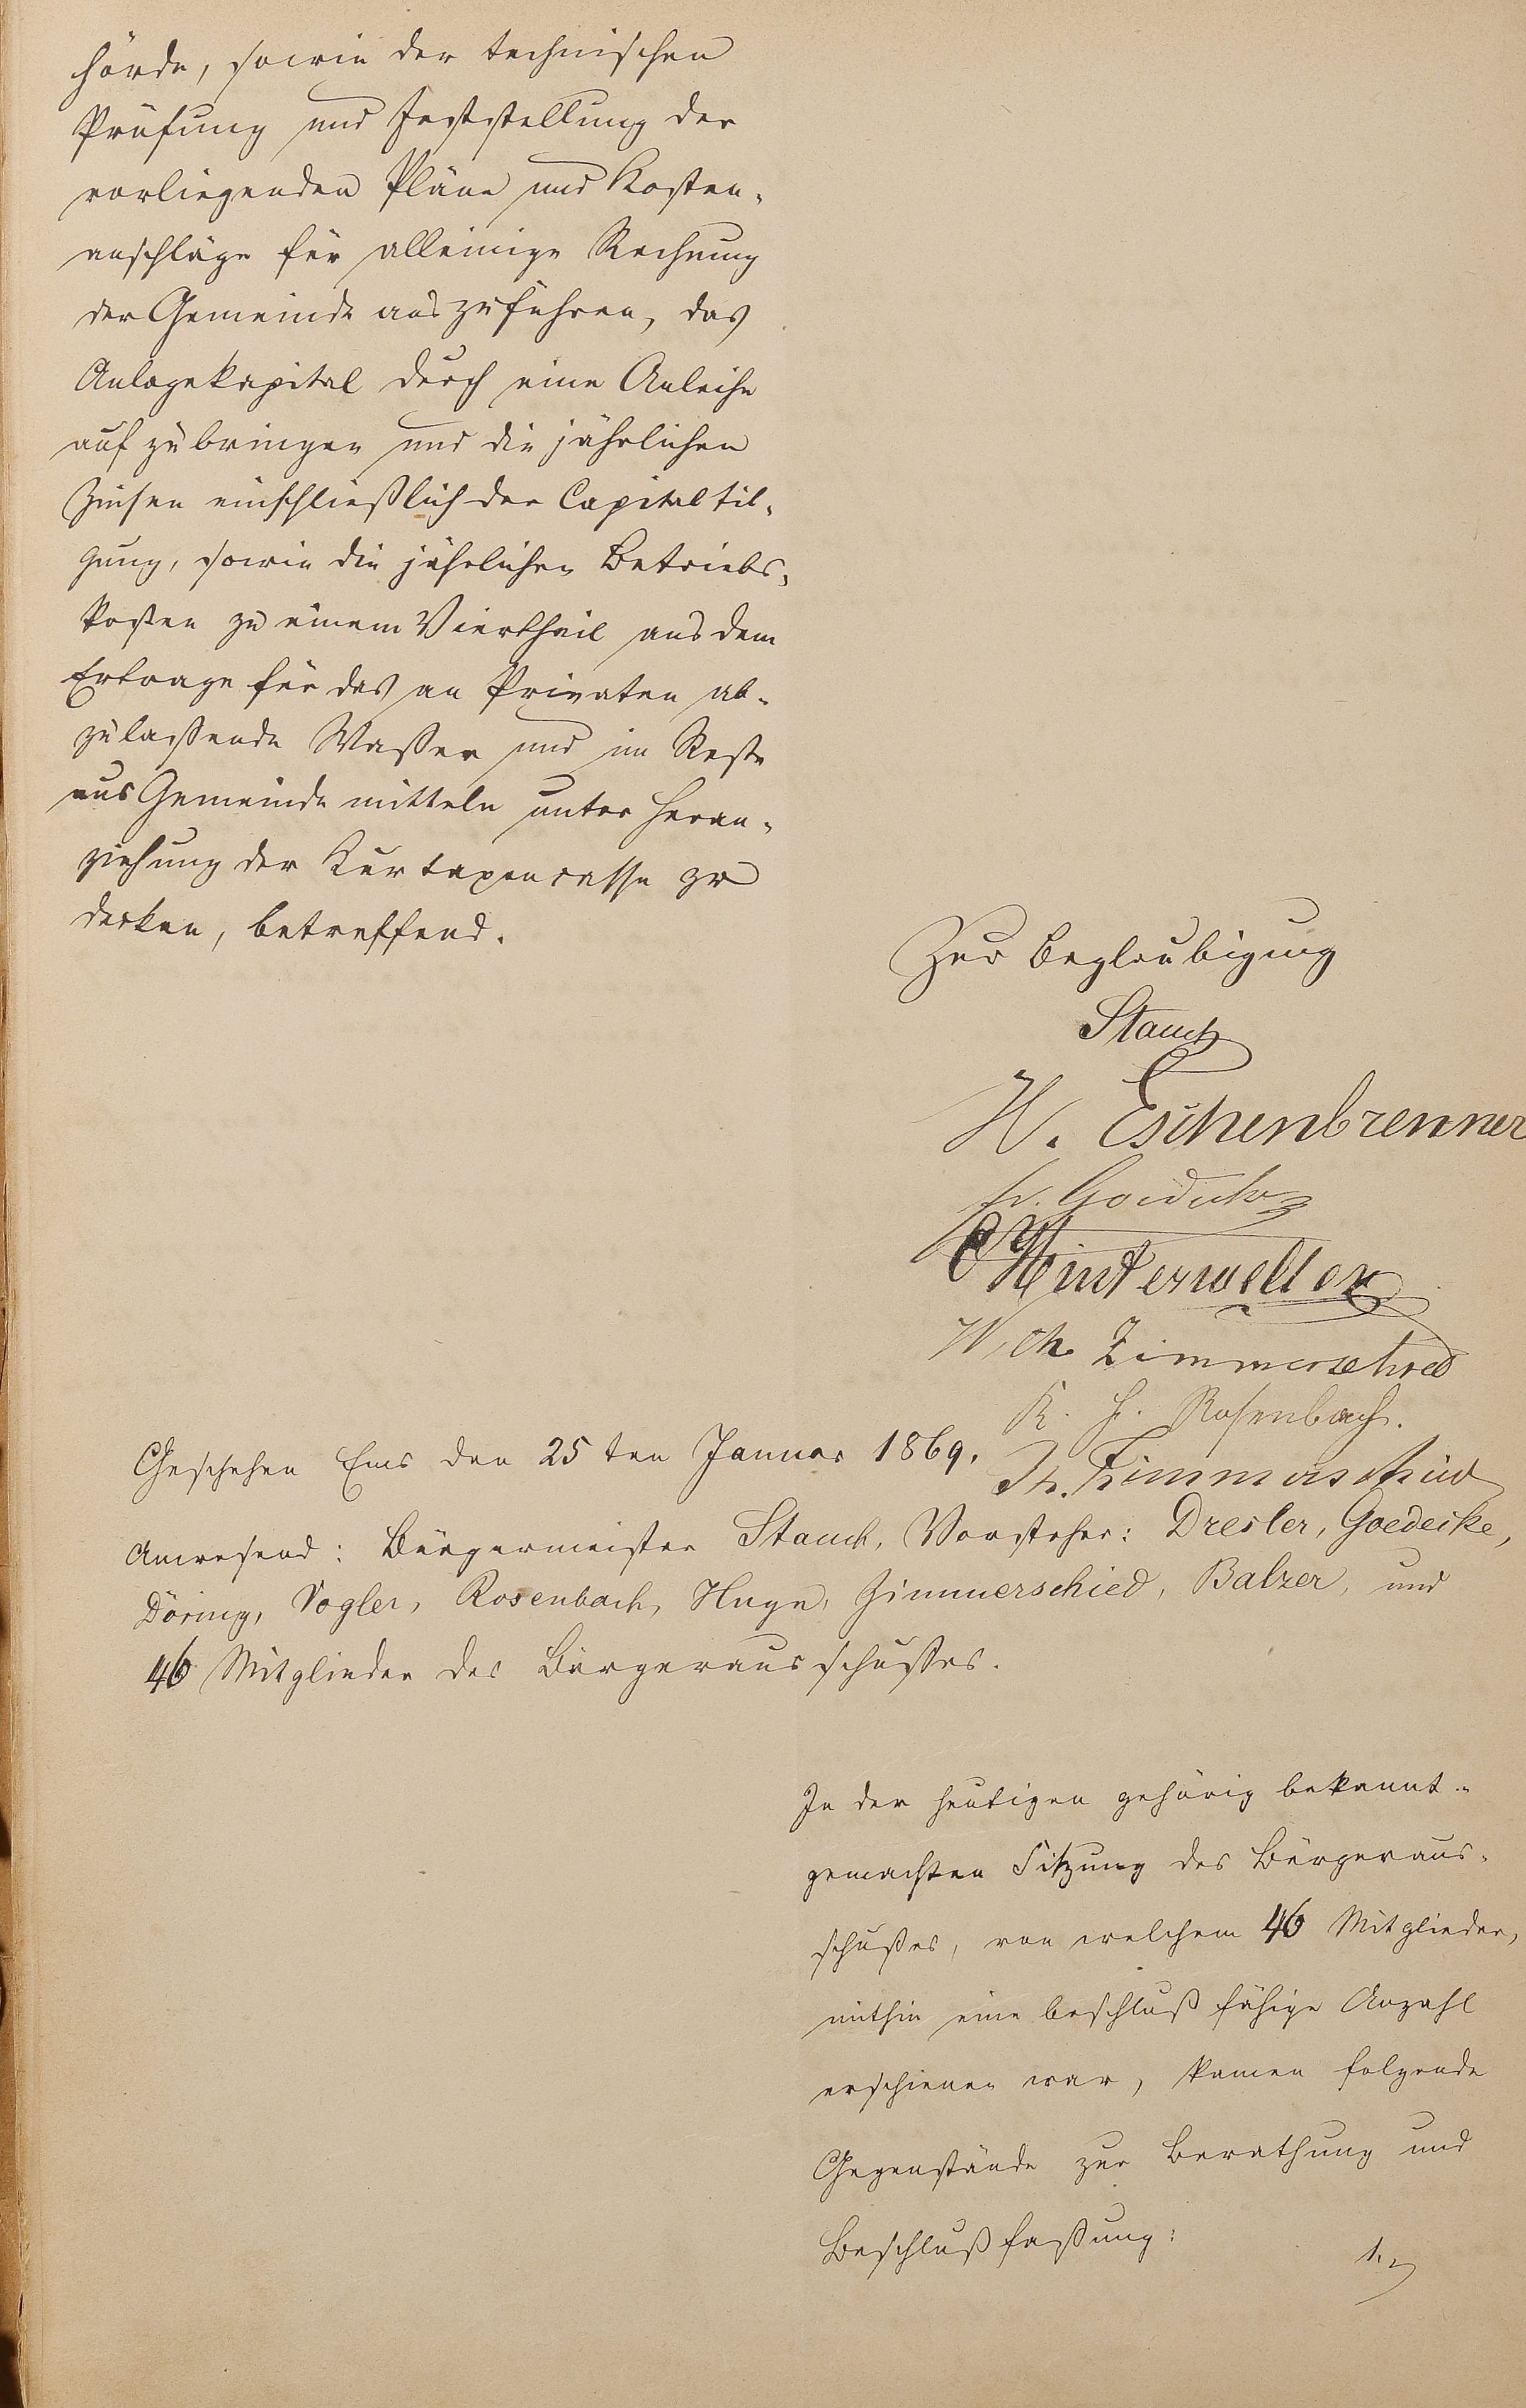 hörde, sowie der technischen
Prüfung und Feststellung der
vorliegenden Pläne und Kosten-
anschläge für alleinige Rechnung
der Gemeinde auszuführen, das
Anlagekapital durch eine Anleihe
aufzubringen und die jährlichen
Zinsen einschließlich der Capitaltil-
gung, sowie die jährlichen Betriebs-
kosten zu einem Viertheil aus dem
Ertrage für das an Privaten ab-
zulaßende Waßer und im Reste
aus Gemeindemitteln unter Heran-
ziehung der Kurtaxencasse zu
decken, betreffend.
Zur Beglaubigung
Stauch
W. Eschenbrenner
Fr. Goedecke
C Hinterwelter
W. Ch. Zimmerschied
K. H. Rosenbach.
Geschehen Ems den 25ten Januar 1869.
Th. Zimmerschied
Anwesend: Bürgermeister Stauch, Vorsteher: Dresler, Goedecke,
Döring, Vogler, Rosenbach, Huyn, Zimmerschied, Balzer, und
46 Mitglieder des Bürgerausschußes.
In der heutigen gehörig bekannt-
gemachten Sitzung des Bürgeraus-
schußes, von welchem 46 Mitglieder,
mithin eine beschlußfähige Anzahl
erschienen war, kamen folgende
Gegenstände zur Berathung und
Beschlußfaßung:
1.,